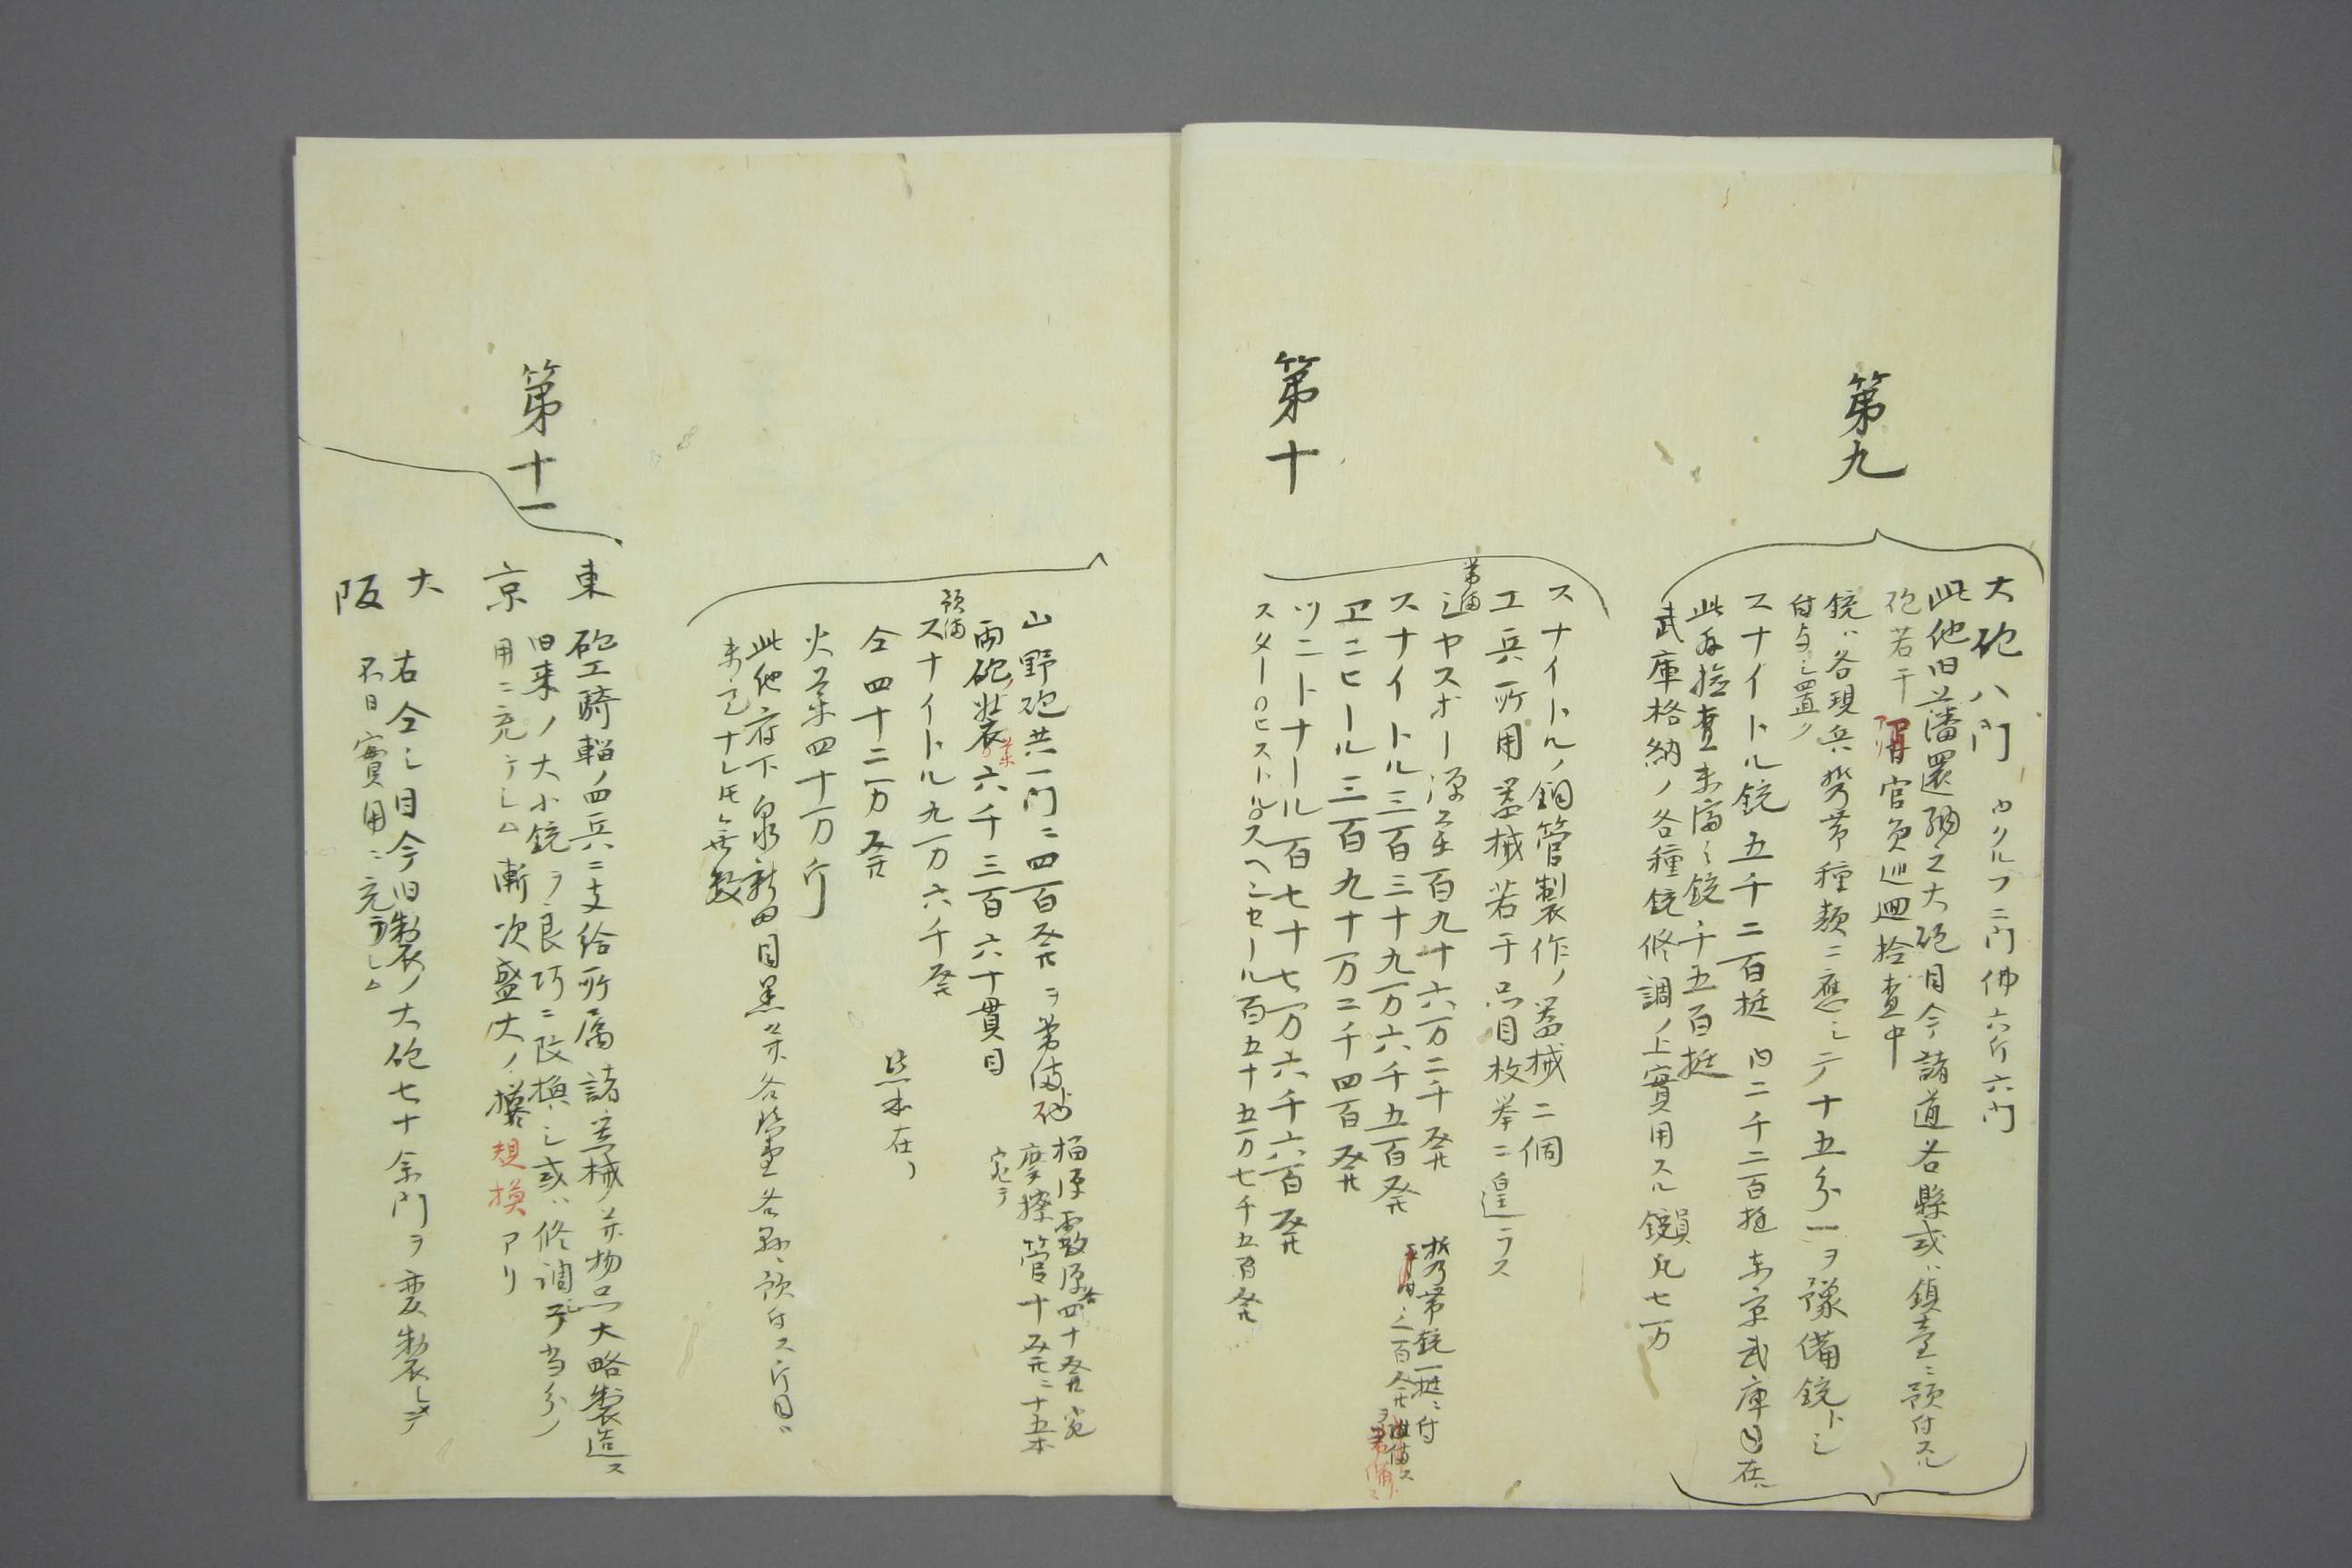 第九
大砲八門 内クルフ二門佛六斤六門
此他旧藩還納之大砲目今諸道各縣或ハ鎮臺ニ預付スル
砲若干 官員巡廻捡査中
銃ハ各現兵携帯種類ニ應シテ十五分一ヲ豫備銃トシ
付与シ置ク
スナイトル銃五千二百挺 内二千二百挺東京武庫ニ在ル
此存捡査未済ノ銃千五百挺
武庫格納ノ各種銃修調ノ上實用スル銃員凡七万
第十
スナイトル銅管製作ノ器械二個
工兵所用器械若干品目枚挙ニ遑ラス
常備
シヤスポー弾薬百九十六万二千発
スナイトル三百三十九万六千五百発
携帯銃一挺ニ付
二百発
ヱンヒール三百九十万二千四百発
ツンナール百七十七万六千六百発
スターロヒストルスヘンセール百五十五万七千五百発
山野砲共一門ニ四百発ヲ常備
榴弾霰弾各四十発宛
摩擦管十発ニ十五本
宛テ
両砲装薬六千三百六十貫目
預備
スナイトル九万六千発
仝四十二万発 熊本在リ
火薬四十万斤
此他府下泉新田目黒并各鎮臺各縣ニ預付ス斤目ハ
未定ナレ𪜈無数
第十一
東京
砲工騎輜ノ四兵ニ支給所属諸器械并物品大略製造ス
旧来ノ大小銃ヲ良巧ニ改換シ或ハ修調シテ当分ノ
用ニ充テシム漸次盛大ノ規模アリ
大阪
右仝シ目今旧製ノ大砲七十余門ヲ変製シテ
不日實用ニ充ラシム